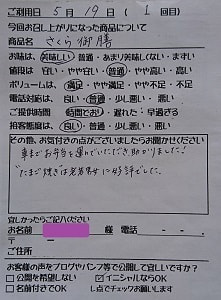 ご利用日 5 月 19 日 ( 1 回目)
今回お召し上がりになった商品について
商品名 さくら御膳
お味は、美味しい・普通・あまり美味しくない・まずい
値段は 安い・やや安い・普通・やや高い・高い
ボリュームは 満足・やや満足・普通・やや不足・不足
電話対応は、良い・普通・少し悪い・悪い
ご提供時間 時間どおり・遅れた・早過ぎる
担当態度は、良い・普通・少し悪い・悪い
その他、お気付きの点がございましたらお聞かせください
車までお弁当を運んでいただき助かりました!
"たまご焼き"は老若男女に好評でした。
宜しかったらご記入ください
お名前 様 電話 - -
ご住所
お客様の声をブログやパンフ等で公開して宜しいですか?
□公開を希望しない □イニシャルならOK
□名前付きでOK レ点でチェックお願いします